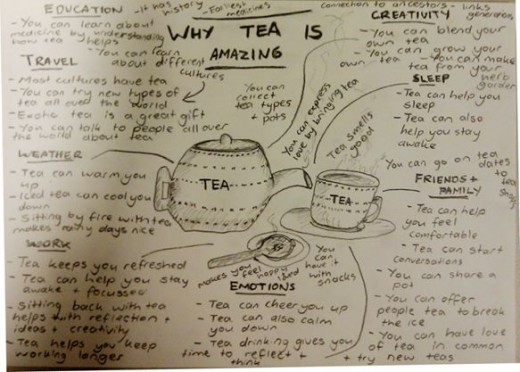 EDUCATION
- It has history
- Earliest medicines
connection to ancestors - links generations
- You can learn about
medicine by understanding
how tea helps
- You can learn
about different
cultures
WHY TEA IS
AMAZING
CREATIVITY
- You can blend your
own tea
- You can grow your
own tea
- You can make
tea from your
herb
garden
TRAVEL
- Most cultures have tea
- You can try new types of
tea all over the world
- Exotic tea is a great gift
- You can talk to people all over
the world about tea
You can
collect
tea types
+ pots
You can express
love by bringing tea
Tea smells
good!
SLEEP
- Tea can help you
sleep
- Tea can also
help you stay
awake
You can go on tea
dates
to tea
shops
WEATHER
- Tea can warm you
up
- Iced tea can cool you
down
- Sitting by fire with tea
makes rainy days nice
TEA
TEA
FRIENDS +
FAMILY
- Tea can help
you feel
comfortable
- Tea can start
conversations
- You can share a
pot
- You can offer
people tea to break
the ice
- You can have love
of tea in common
+ try new teas
WORK
- Tea keeps you refreshed
- Tea can help you stay
awake + focussed
- Sitting back with tea
helps with reflection +
ideas + creativity
- Tea helps you keep
working longer
makes you
feel happy
You can
have it
with
snacks
EMOTIONS
- Tea can cheer you up
- Tea can also calm
you down
- Tea drinking gives you
time to reflect +
think